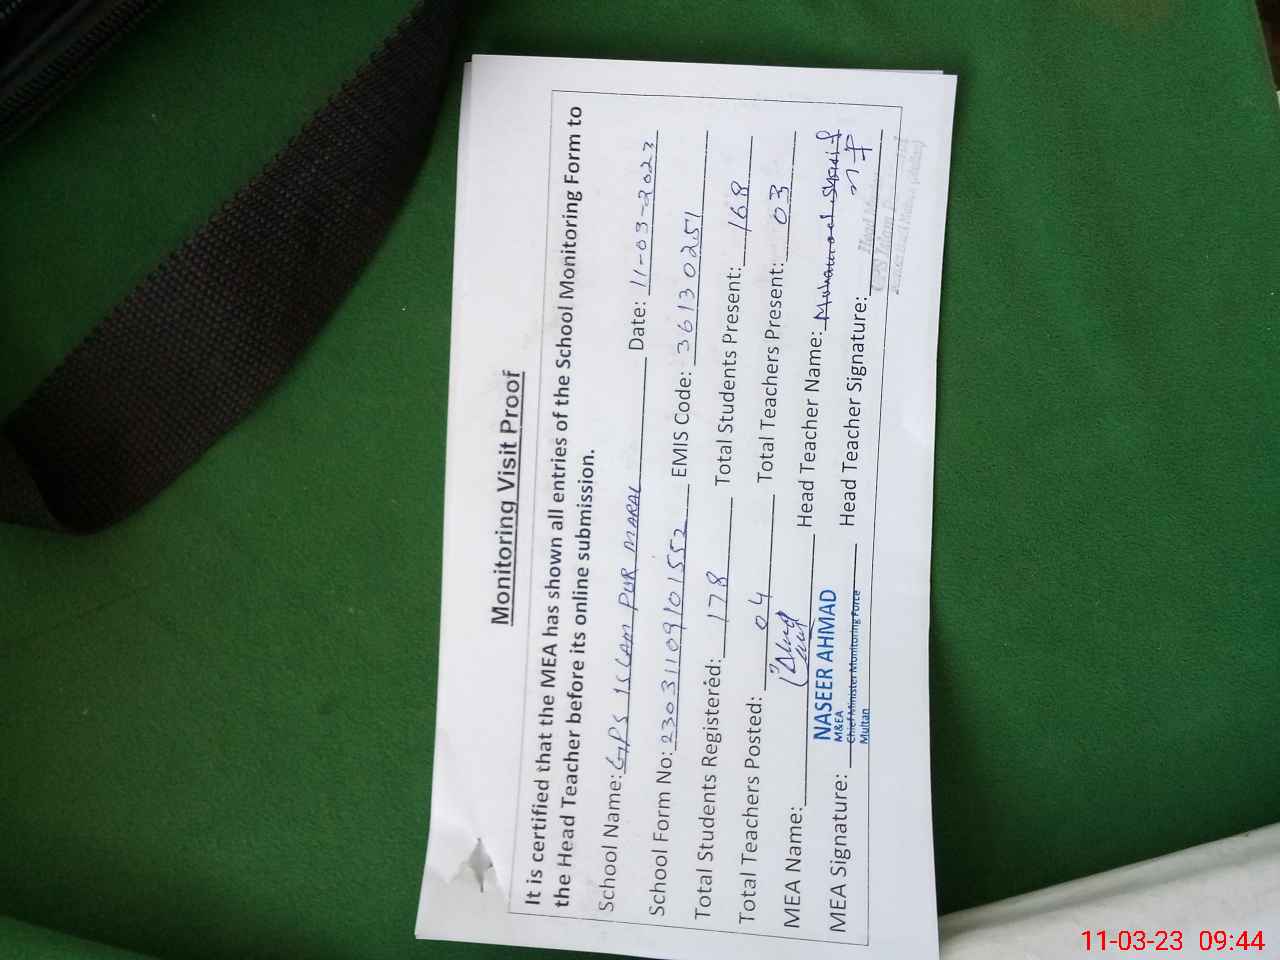 Monitoring Visit Proof
It is certified that the MEA has shown all entries of the School Monitoring Form to
the Head Teacher before its online submission.
School Name: GPS ISLAM PUR MARAL Date: 11-03-2023
School Form No: 23031109101552 EMIS Code: 36130251
Total Students Registered: 178 Total Students Present: 168
Total Teachers Posted: 04 Total Teachers Present: 03
MEA Name: Head Teacher Name: Muhammad Sharif
NASEER AHMAD
M&EA
MEA Signature: Chief Minister Monitoring Force Head Teacher Signature:
Multan
11-03-23 09:44